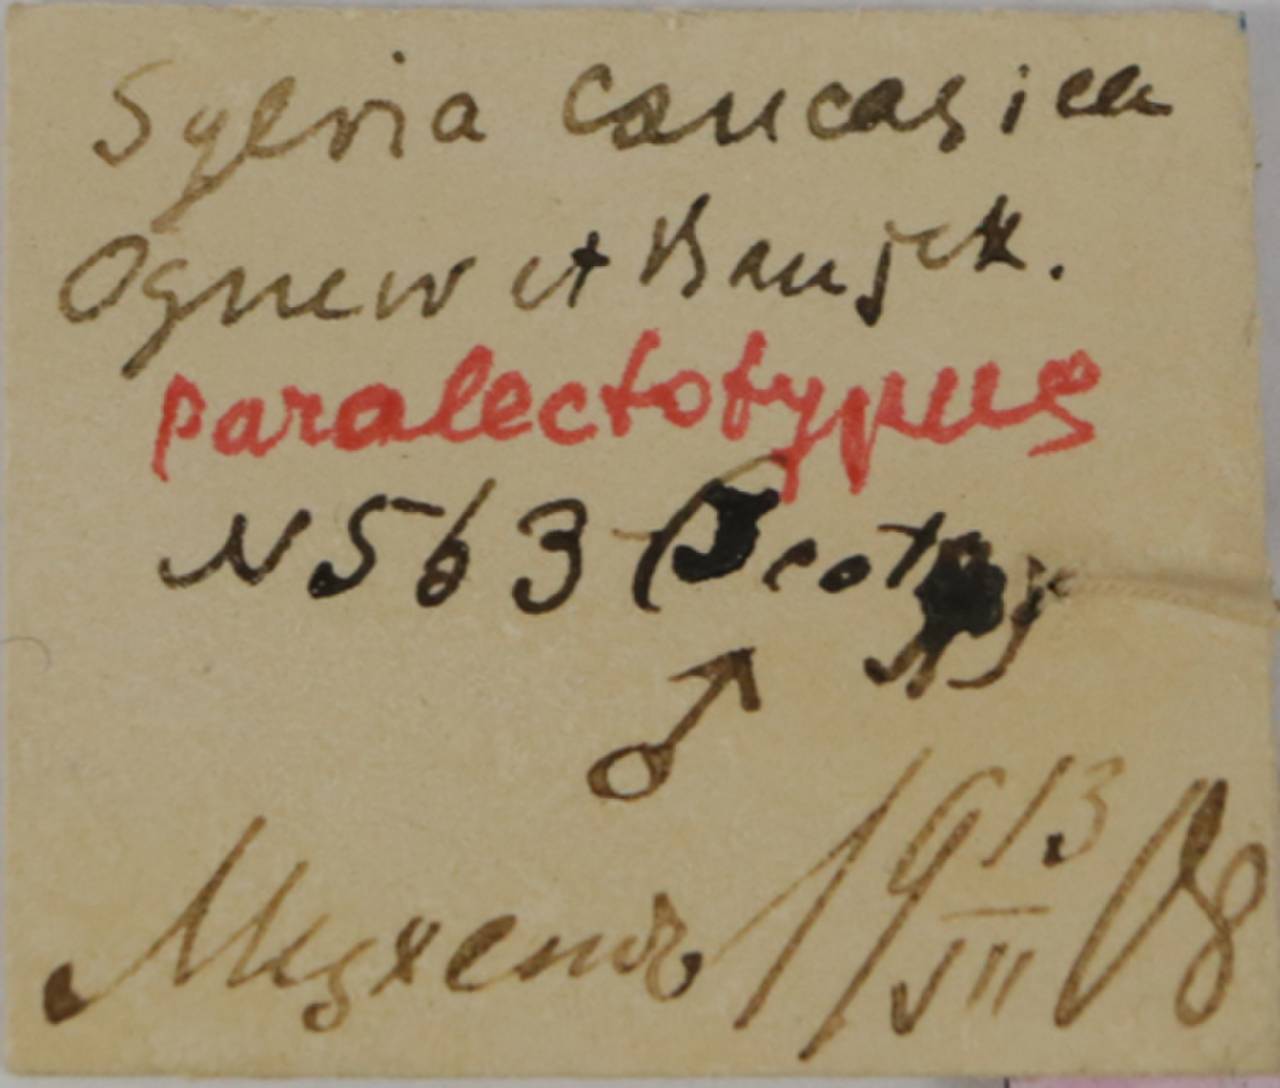 Sylvia caucasica
Ognew et Banjk.
paralectotypus
N 563 (Cotyp)
♂
Мцхетъ 19 13/VII 08